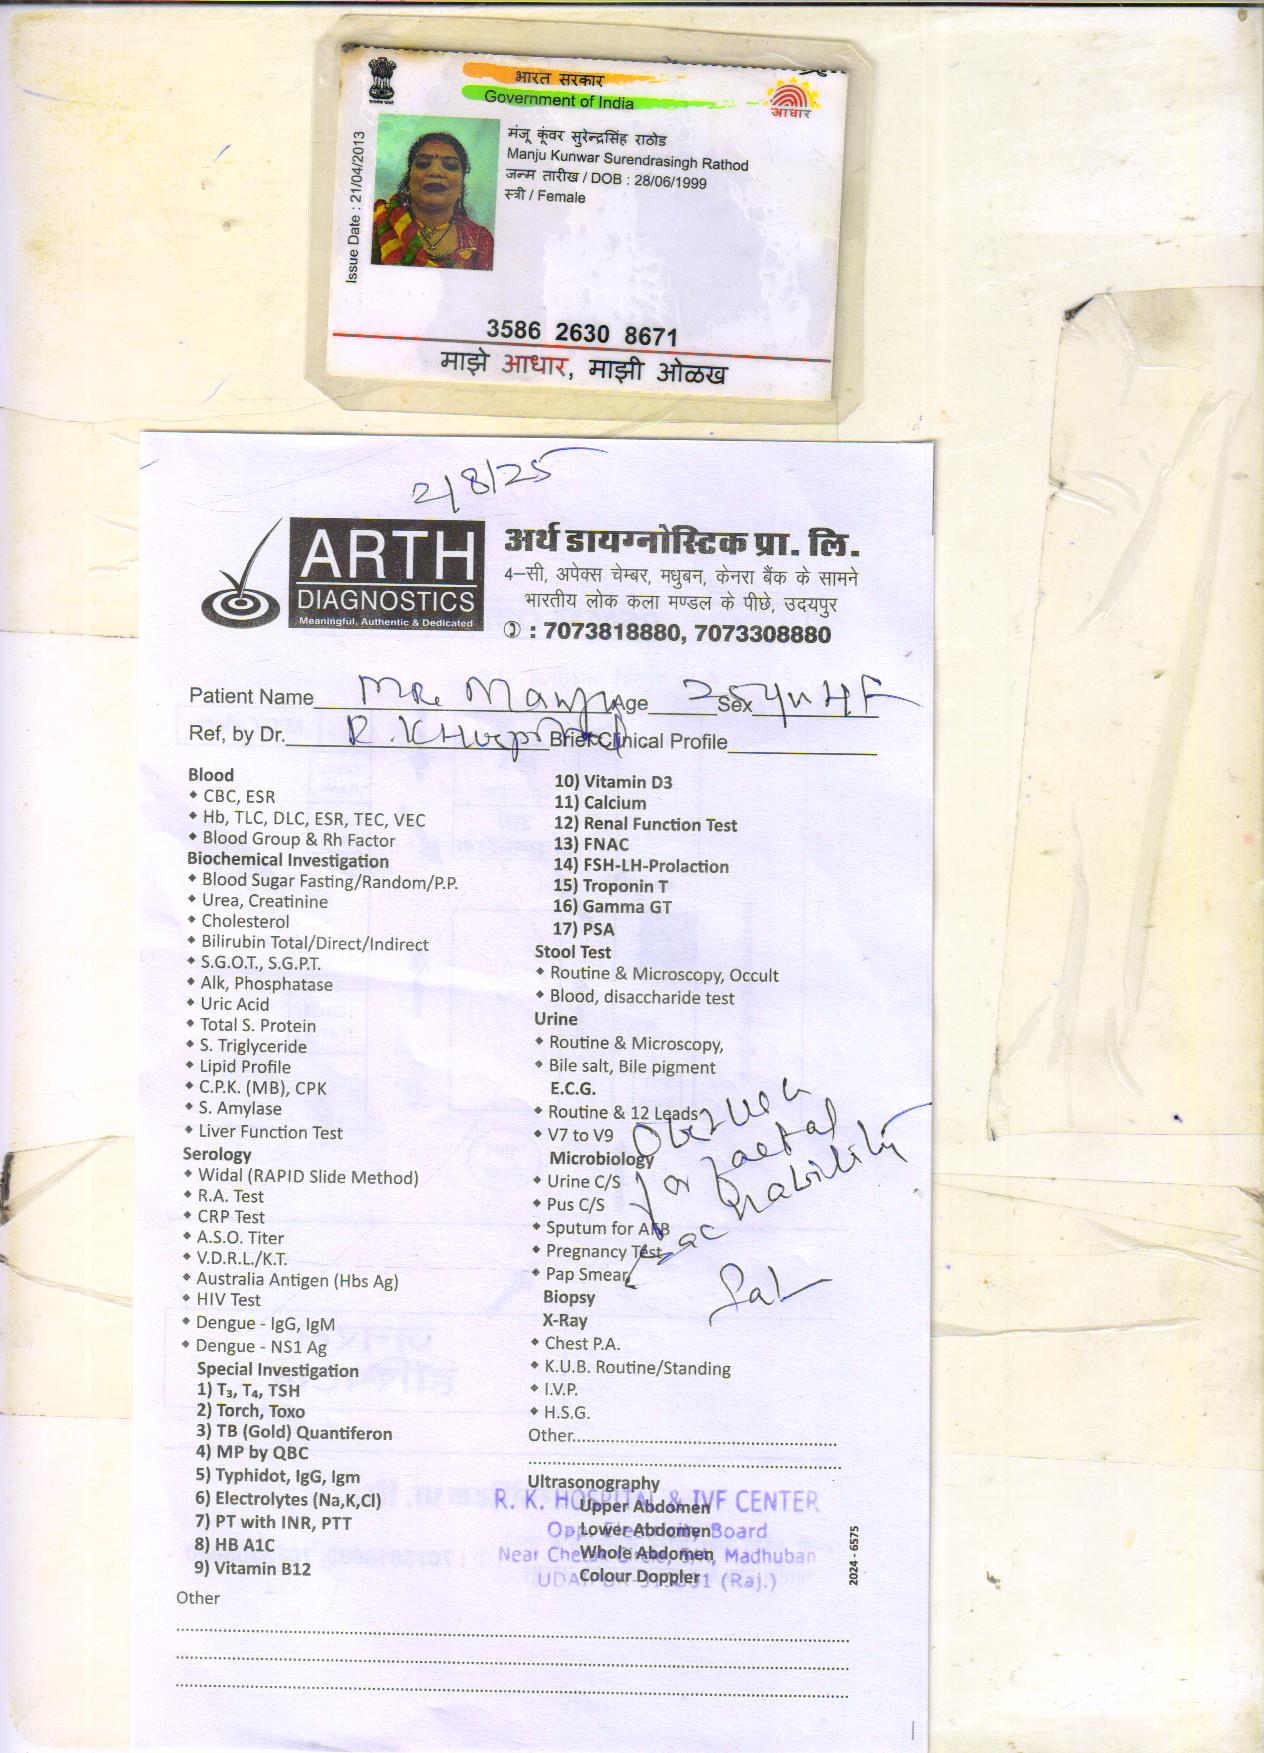 भारत सरकार
Government of India
आधार
Issue Date : 21/04/2013
मंजू कूंवर सुरेन्द्रसिंह राठोड
Manju Kunwar Surendrasingh Rathod
जन्म तारीख / DOB : 28/06/1999
स्त्री / Female
3586 2630 8671
माझे आधार, माझी ओळख
2/8/25
ARTH
DIAGNOSTICS
Meaningful, Authentic & Dedicated
अर्थ डायग्नोस्टिक प्रा. लि.
4–सी, अपेक्स चेम्बर, मधुबन, केनरा बैंक के सामने
भारतीय लोक कला मण्डल के पीछे, उदयपुर
: 7073818880, 7073308880
Patient Name Manju Age 25 Sex F
Ref, by Dr. R.K Hospital Brief Clinical Profile
Blood
CBC, ESR
Hb, TLC, DLC, ESR, TEC, VEC
Blood Group & Rh Factor
Biochemical Investigation
Blood Sugar Fasting/Random/P.P.
Urea, Creatinine
Cholesterol
Bilirubin Total/Direct/Indirect
S.G.O.T., S.G.P.T.
Alk, Phosphatase
Uric Acid
Total S. Protein
S. Triglyceride
Lipid Profile
C.P.K. (MB), CPK
S. Amylase
Liver Function Test
Serology
Widal (RAPID Slide Method)
R.A. Test
CRP Test
A.S.O. Titer
V.D.R.L./K.T.
Australia Antigen (Hbs Ag)
HIV Test
Dengue - IgG, IgM
Dengue - NS1 Ag
Special Investigation
1) T₃, T₄, TSH
2) Torch, Toxo
3) TB (Gold) Quantiferon
4) MP by QBC
5) Typhidot, IgG, Igm
6) Electrolytes (Na,K,Cl)
7) PT with INR, PTT
8) HB A1C
9) Vitamin B12
10) Vitamin D3
11) Calcium
12) Renal Function Test
13) FNAC
14) FSH-LH-Prolaction
15) Troponin T
16) Gamma GT
17) PSA
Stool Test
Routine & Microscopy, Occult
Blood, disaccharide test
Urine
Routine & Microscopy,
Bile salt, Bile pigment
E.C.G.
Routine & 12 Leads
V7 to V9
Microbiology
Urine C/S
Pus C/S
Sputum for AFB
Pregnancy Test
Pap Smear
Biopsy
X-Ray
Chest P.A.
K.U.B. Routine/Standing
I.V.P.
H.S.G.
Other
for faetal
Ultrasonography
Upper Abdomen
Lower Abdomen
Whole Abdomen
Colour Doppler
R. K. HOSPITAL & IVF CENTER
Opp. Electricity Board
Near Chetak Circle, Madhuban
UDAIPUR (Raj.)
2024 - 6575
Other